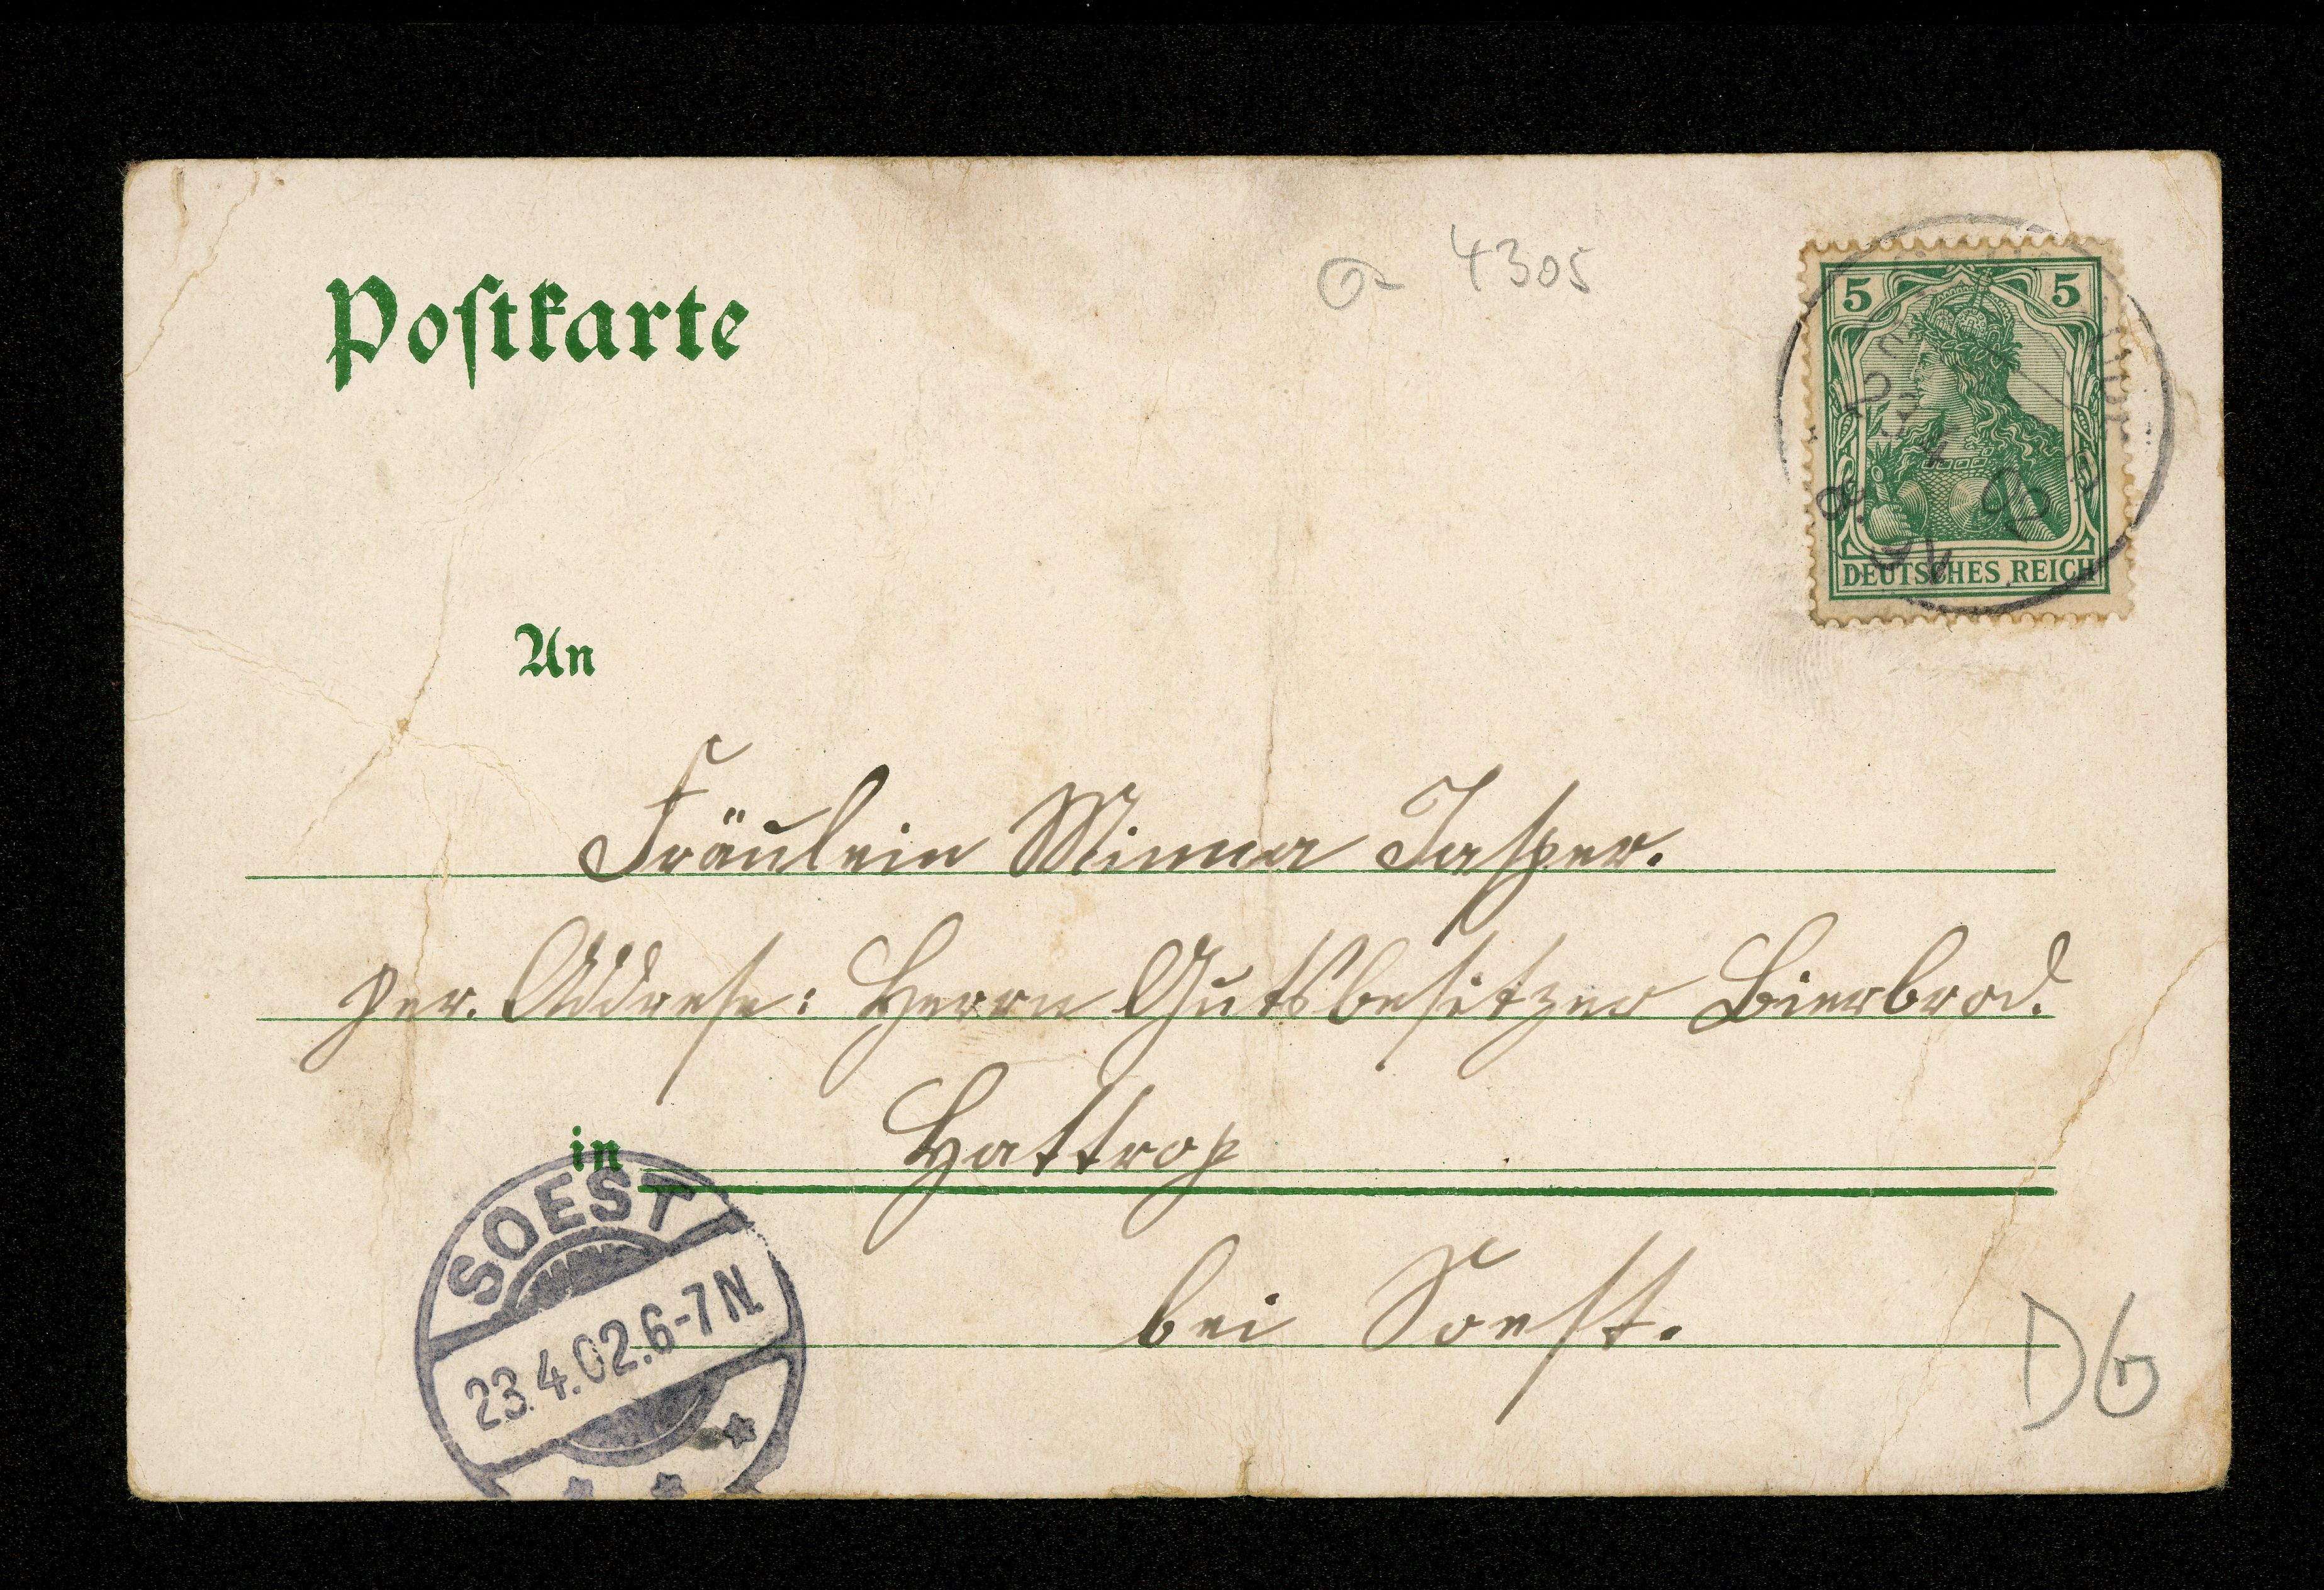 Postkarte
4305
5 5
DEUTSCHES REICH
An
Fräulein Minna Jasper.
per. Addresse: Herrn Gutsbesitzer Bierbrod.
in Hattrop
bei Soest.
SOEST
23.4.02.6-7N.
DG